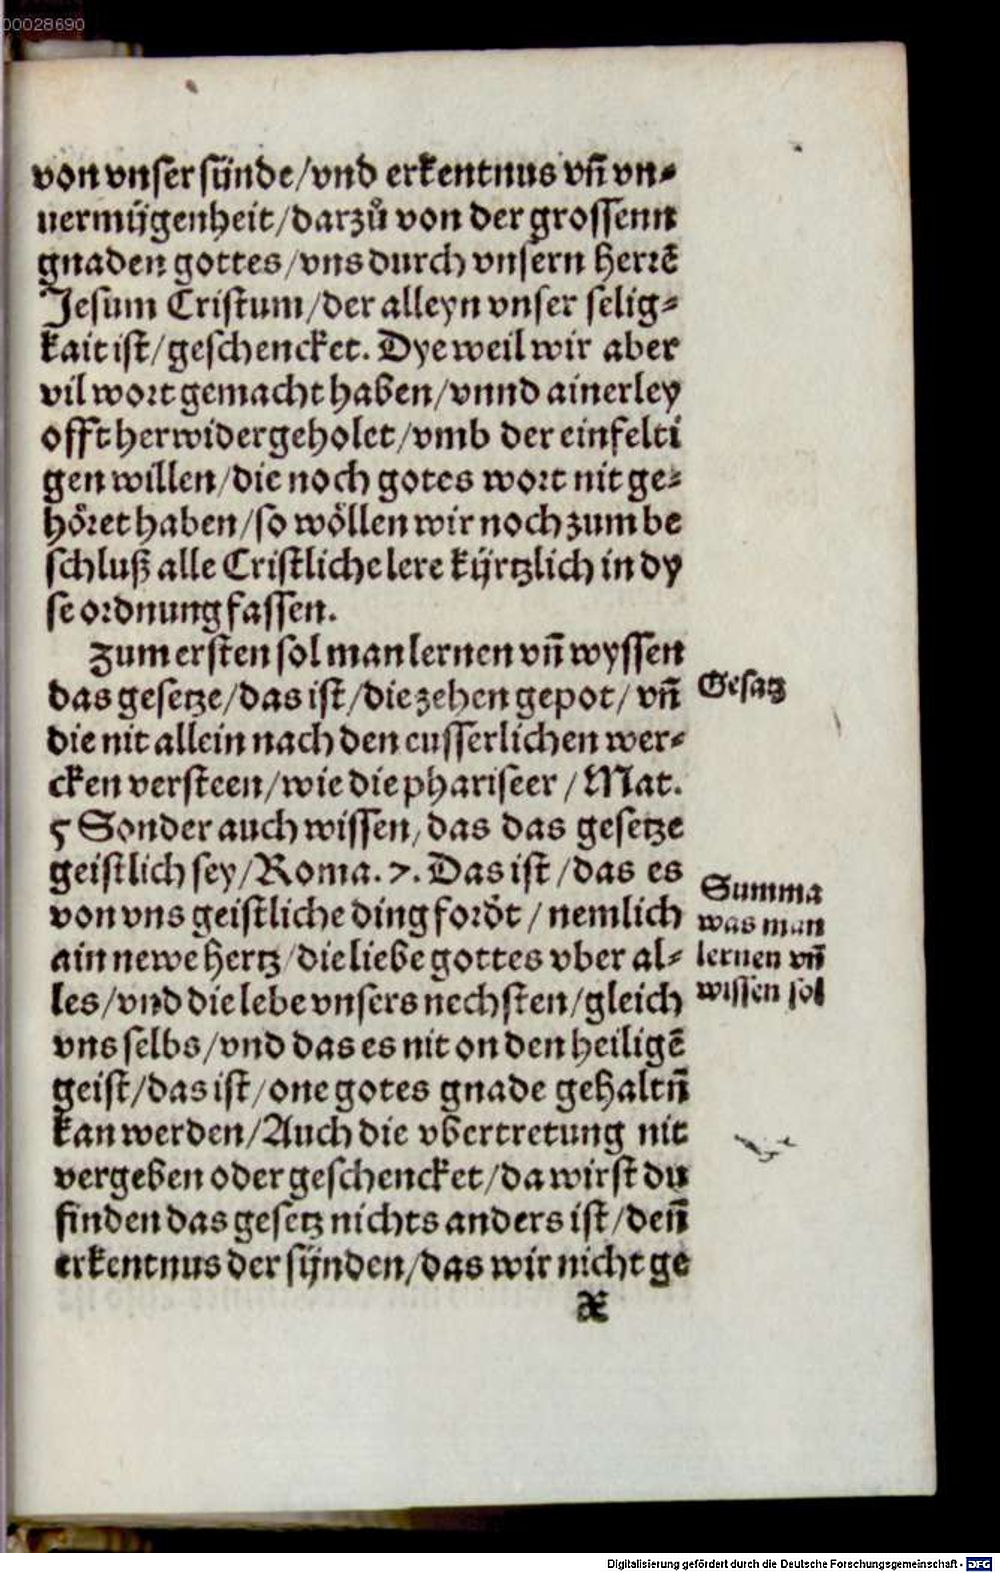 00028690
von vnser sünde/vnd erkentnus vn̄ vn⸗
uermügenheit/darzů von der grossenn
gnaden gottes/vns durch vnsern herrē
Jesum Cristum/der alleyn vnser selig⸗
kait ist/geschencket. Dye weil wir aber
vil wort gemacht haben/vnnd ainerley
offt herwider geholet/vmb der einfelti
gen willen/die noch gotes wort nit ge⸗
höret haben/so wöllen wir noch zum be
schluß alle Cristliche lere kürtzlich in dy
se ordnung fassen.
Zum ersten sol man lernen vn̄ wyssen
das gesetze/das ist/die zehen gepot/vn̄
Gesatz
die nit allein nach den eusserlichen wer⸗
cken versteen/wie die phariseer/Mat.
5 Sonder auch wissen/das das gesetze
geistlich sey/Roma.7. Das ist/das es
von vns geistliche ding fordt/nemlich
ain newe hertz/die liebe gottes vber al⸗
les/vnd die lebe vnsers nechsten/gleich
Summa
was man
lernen vn̄
wissen sol
vns selbs/vnd das es nit on den heiligē
geist/das ist/one gotes gnade gehaltn̄
kan werden/Auch die vbertretung nit
vergeben oder geschencket/da wirst du
finden das gesetz nichts anders ist/den̄
erkentnus der sünden/das wir nicht ge
æ
Digitalisierung gefördert durch die Deutsche Forschungsgemeinschaft - DFG